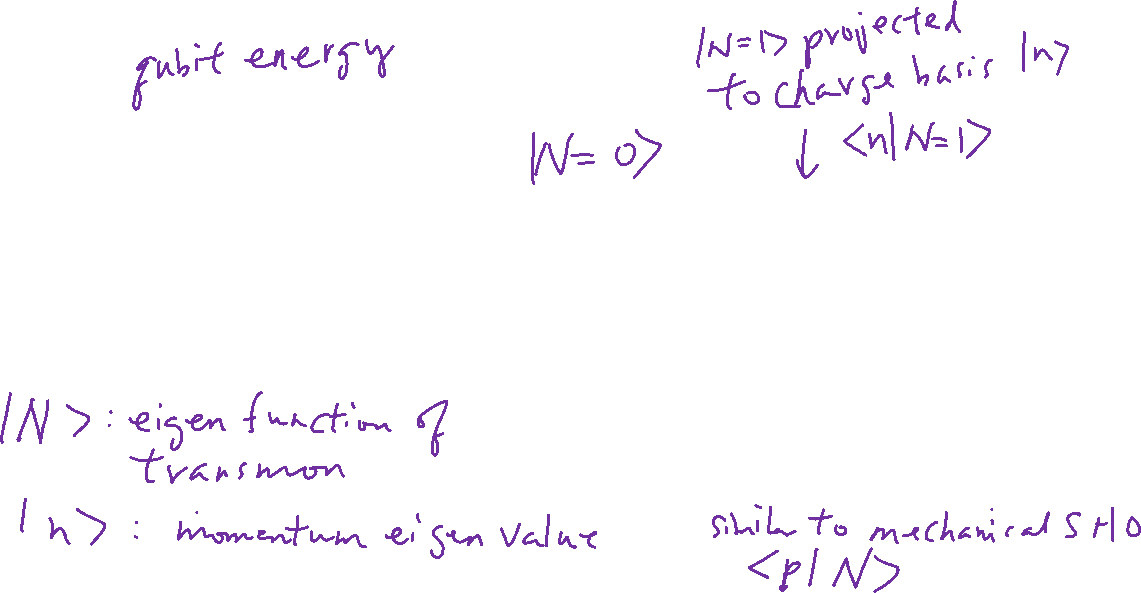 qubit energy
|N=1> projected
to charge basis |n>
|N=0>
↓ <n|N=1>
|N>: eigen function of
transmon
|n>: momentum eigen value
similar to mechanical SHO
<p|N>